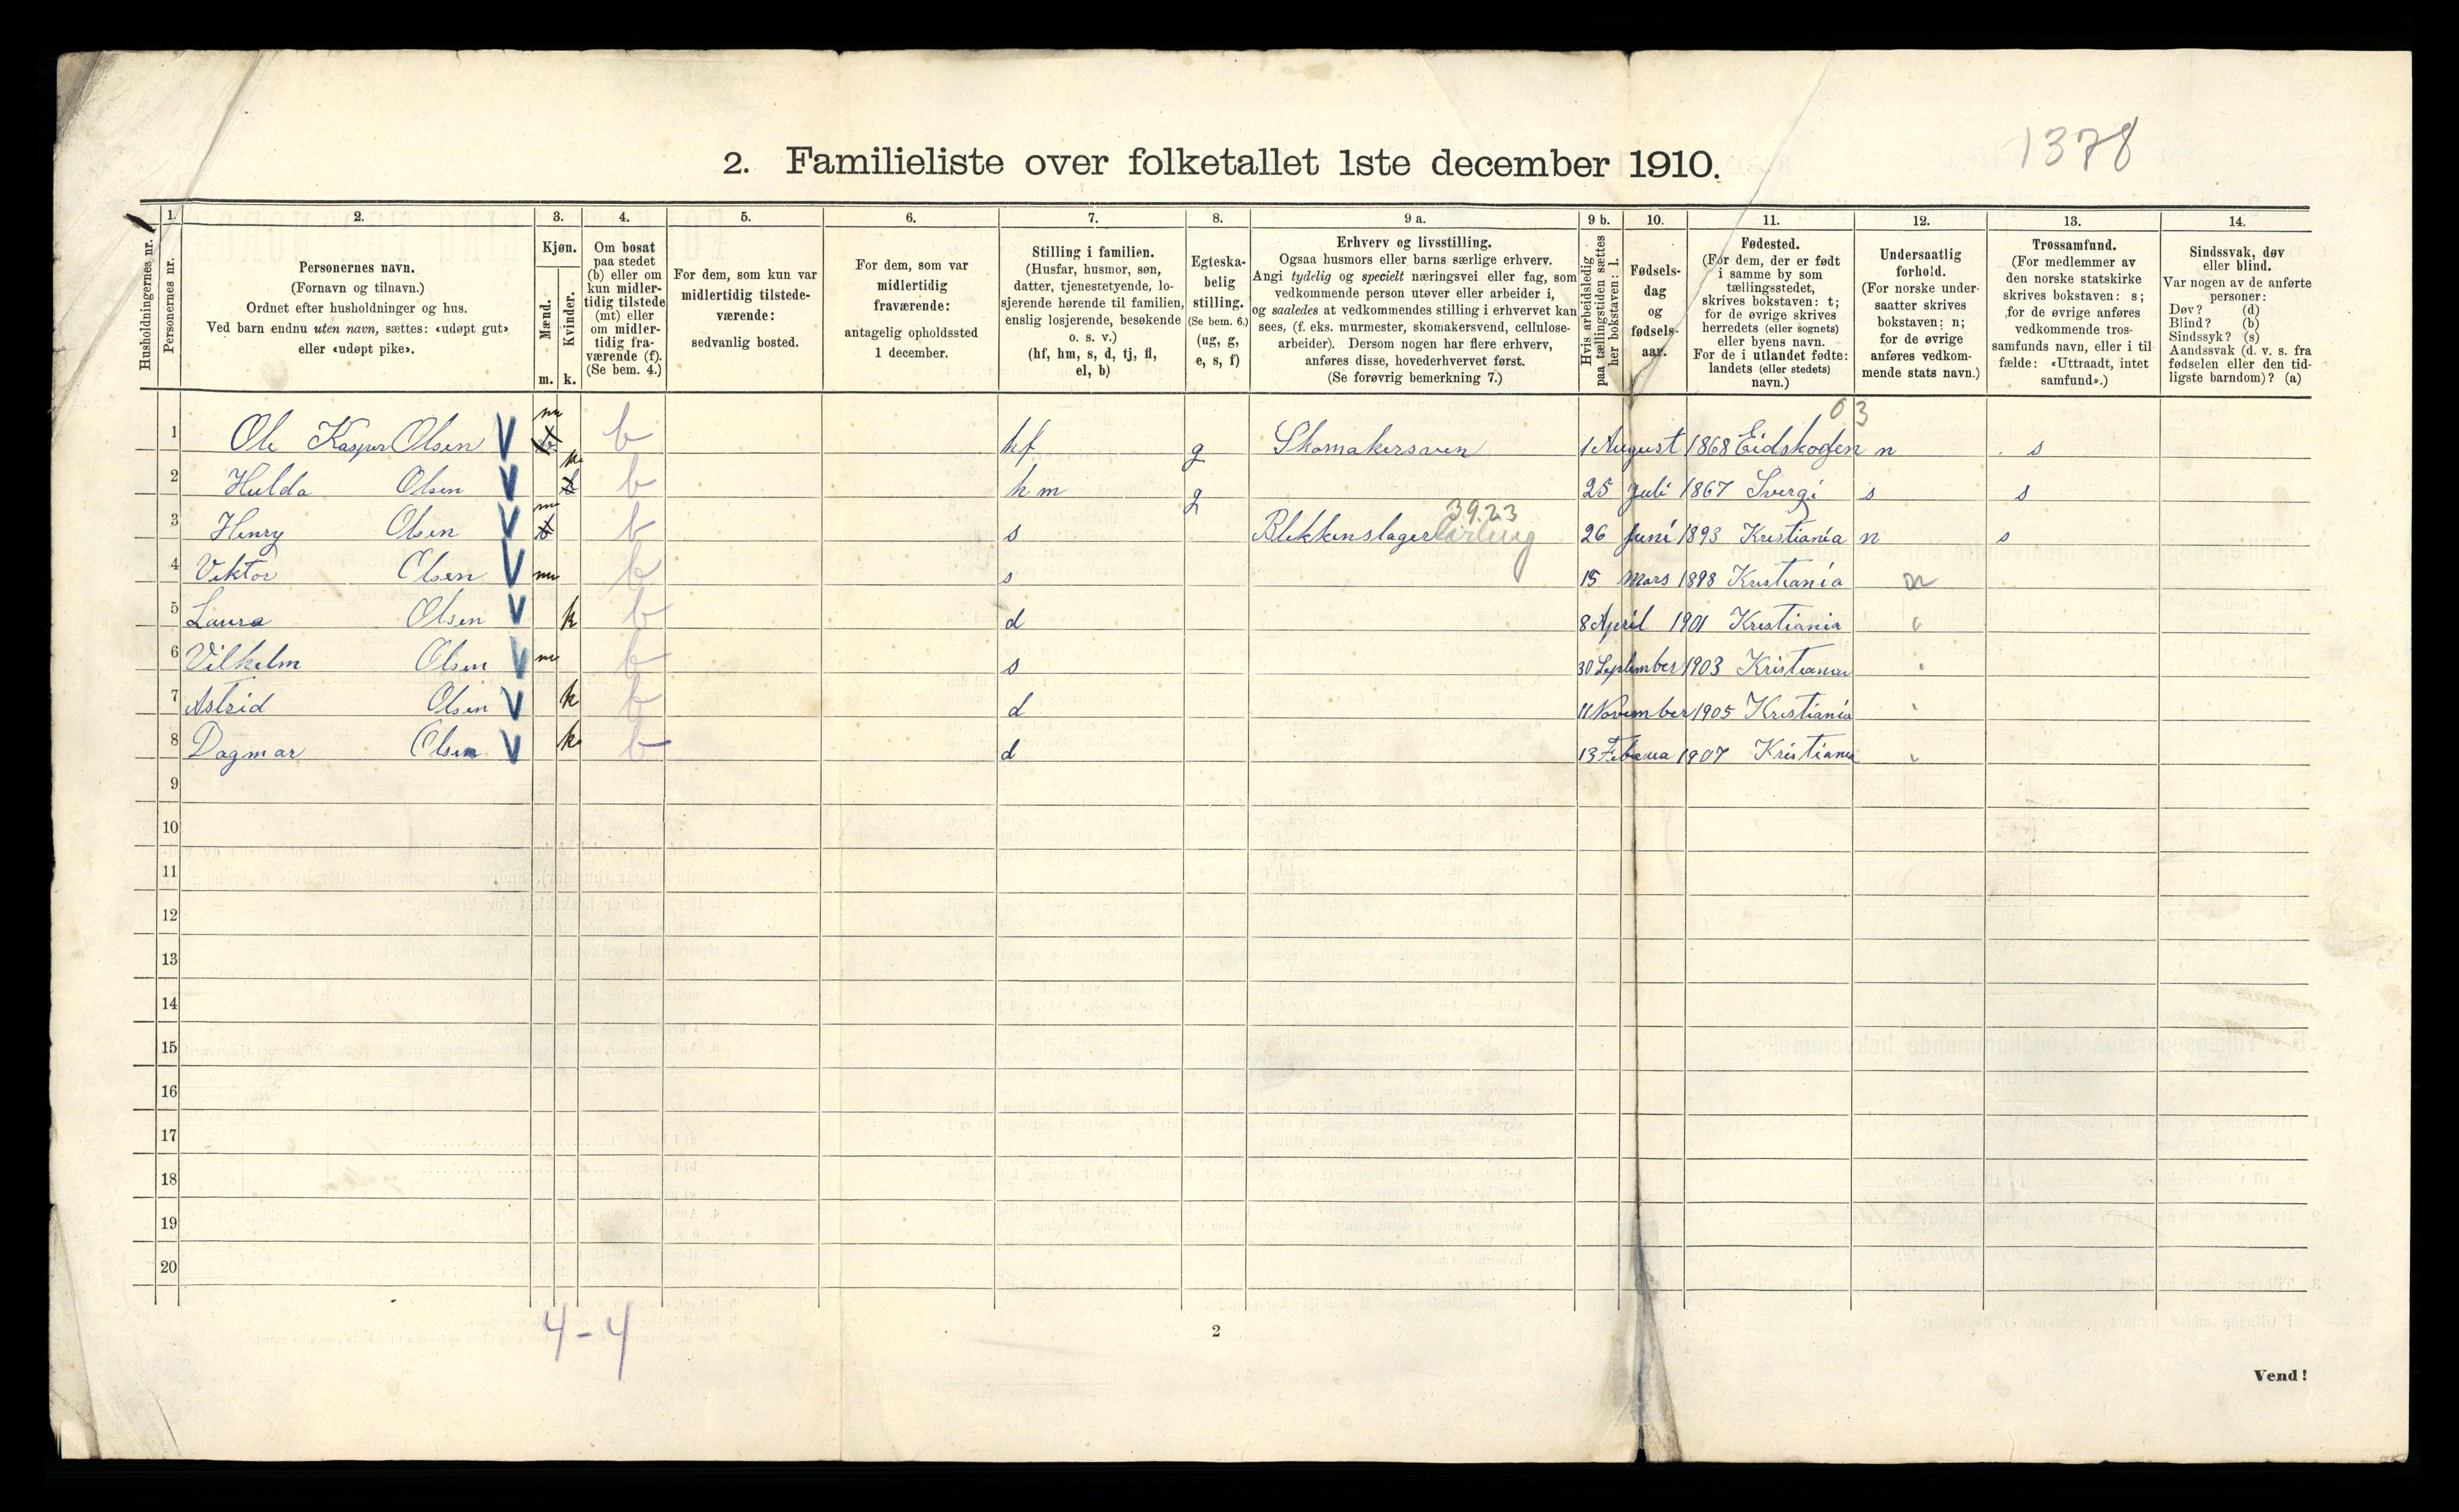 1378
2. Familieliste over folketallet 1ste december 1910.
Husholdningernes nr.
1. Personernes nr.
2. Personernes navn. (Fornavn og tilnavn.) Ordnet efter husholdninger og hus. Ved barn endnu uten navn, sættes: «udøpt gut» eller «udøpt pike».
3. Kjøn. Mænd. m. Kvinder. k.
4. Om bosat paa stedet (b) eller om kun midlertidig tilstede (mt) eller om midlertidig fraværende (f). (Se bem. 4.)
5. For dem, som kun var midlertidig tilstedeværende: sedvanlig bosted.
6. For dem, som var midlertidig fraværende: antagelig opholdssted 1 december.
7. Stilling i familien. (Husfar, husmor, søn, datter, tjenestetyende, losjerende hørende til familien, enslig losjerende, besøkende o. s. v.) (hf, hm, s, d, tj, fl, el, b)
8. Egteskabelig stilling. (Se bem. 6.) (ug, g, e, s, f)
9 a. Erhverv og livsstilling. Ogsaa husmors eller barns særlige erhverv. Angi tydelig og specielt næringsvei eller fag, som vedkommende person utøver eller arbeider i, og saaledes at vedkommendes stilling i erhvervet kan sees, (f. eks. murmester, skomakersvend, cellulosearbeider). Dersom nogen har flere erhverv, anføres disse, hovederhvervet først. (Se forøvrig bemerkning 7.)
9 b. Hvis arbeidsledig paa tællingstiden sættes her bokstaven: l.
10. Fødselsdag og fødselsaar.
11. Fødested. (For dem, der er født i samme by som tællingsstedet, skrives bokstaven: t; for de øvrige skrives herredets (eller sognets) eller byens navn. For de i utlandet fødte: landets (eller stedets) navn.)
12. Undersaatlig forhold. (For norske undersaatter skrives bokstaven: n; for de øvrige anføres vedkommende stats navn.)
13. Trossamfund. (For medlemmer av den norske statskirke skrives bokstaven: s; for de øvrige anføres vedkommende trossamfunds navn, eller i tilfælde: «Uttraadt, intet samfund».)
14. Sindssvak, døv eller blind. Var nogen av de anførte personer: Døv? (d) Blind? (b) Sindssyk? (s) Aandssvak (d. v. s. fra fødselen eller den tidligste barndom)? (a)
03
1 Ole Kasper Olsen V m b hf g Skomakersven 1 August 1868 Eidskogen n s
2 Hulda Olsen V k b hm g 25 Juli 1867 Svergi s s
39.23
3 Henry Olsen V m b s Blikkenslagerlærling 26 Juni 1893 Kristiania n s
4 Viktor Olsen V m b s 15 Mars 1898 Kristiania n
5 Laura Olsen V k b d 8 April 1901 Kristiania "
6 Vilhelm Olsen V m b s 30 September 1903 Kristiania "
7 Astrid Olsen V k b d 11 November 1905 Kristiania "
8 Dagmar Olsen V k b d 13 Februa 1907 Kristiania "
9
10
11
12
13
14
15
16
17
18
19
20
4-4
2
Vend!